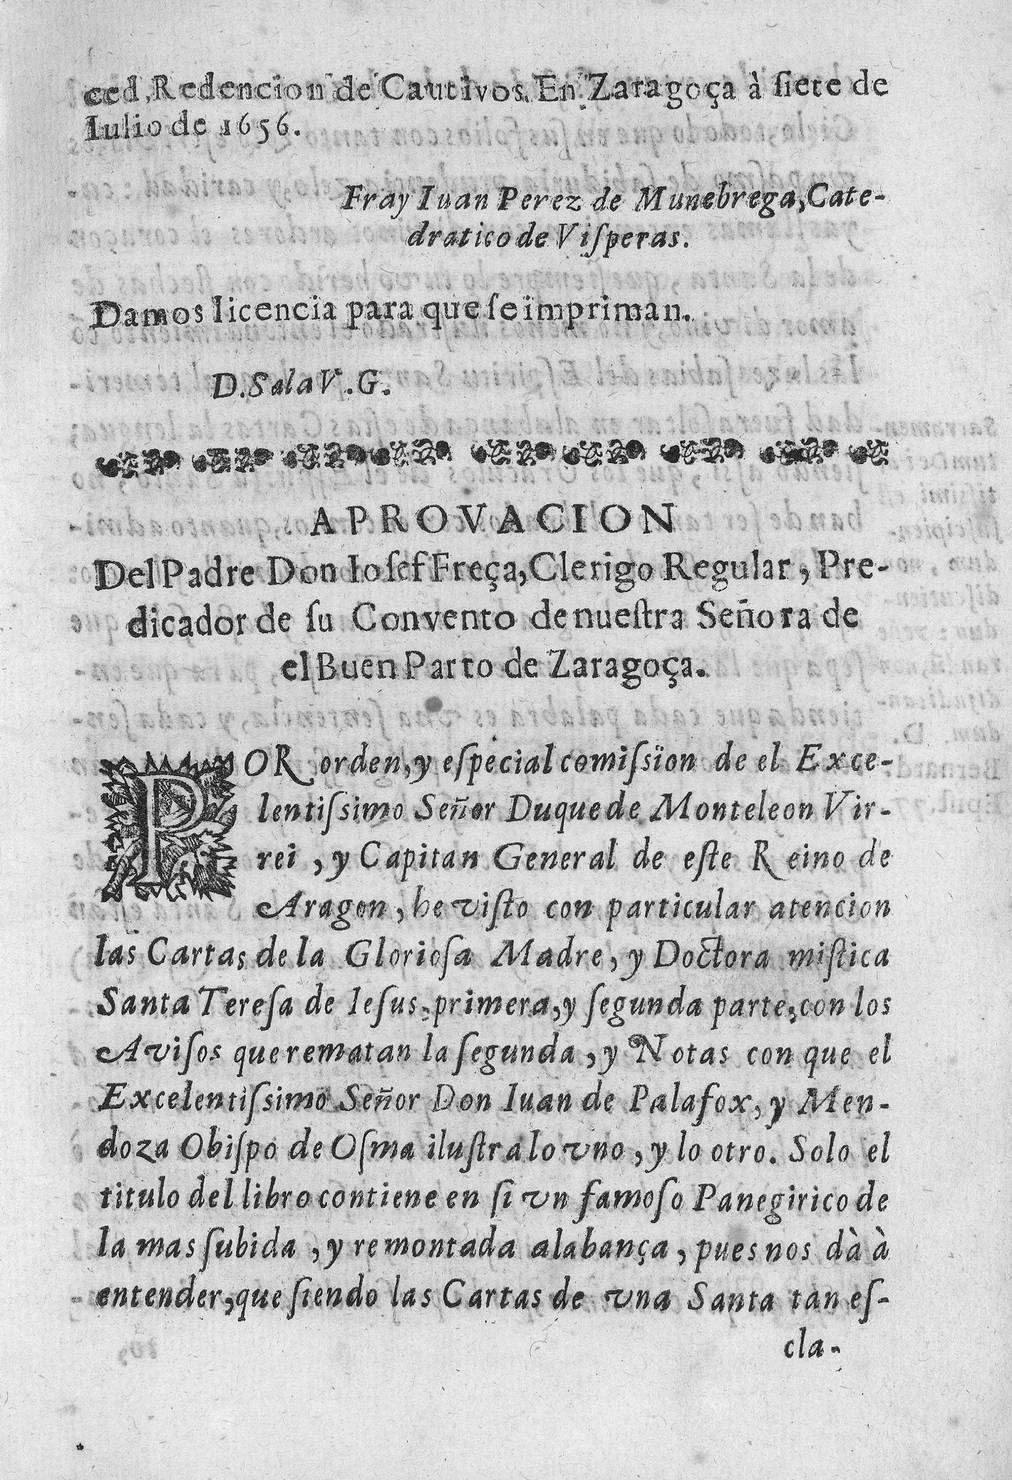 ced, Redencion de Cautivos. En Zaragoça à ſiete de
Iulio de 1656.
Fray Iuan Perez de Munebrega, Cate-
dratico de Viſperas.
Damos licencia para que ſe impriman.
D. Sala V. G.
APROVACION
Del Padre Don Ioſef Freça, Clerigo Regular, Pre-
dicador de ſu Convento de nueſtra Señora de
el Buen Parto de Zaragoça.
POR orden, y eſpecial comiſsion de el Exce-
lentiſsimo Señor Duque de Monteleon Vir-
rei, y Capitan General de eſte Reino de
Aragon, he viſto con particular atencion
las Cartas de la Glorioſa Madre, y Doctora miſtica
Santa Tereſa de Ieſus, primera, y ſegunda parte, con los
Aviſos que rematan la ſegunda, y Notas con que el
Excelentiſsimo Señor Don Iuan de Palafox, y Men-
doza Obiſpo de Oſma iluſtra lo vno, y lo otro. Solo el
titulo del libro contiene en ſi vn famoſo Panegirico de
la mas ſubida, y remontada alabança, pues nos dà à
entender, que ſiendo las Cartas de vna Santa tan eſ-
cla-